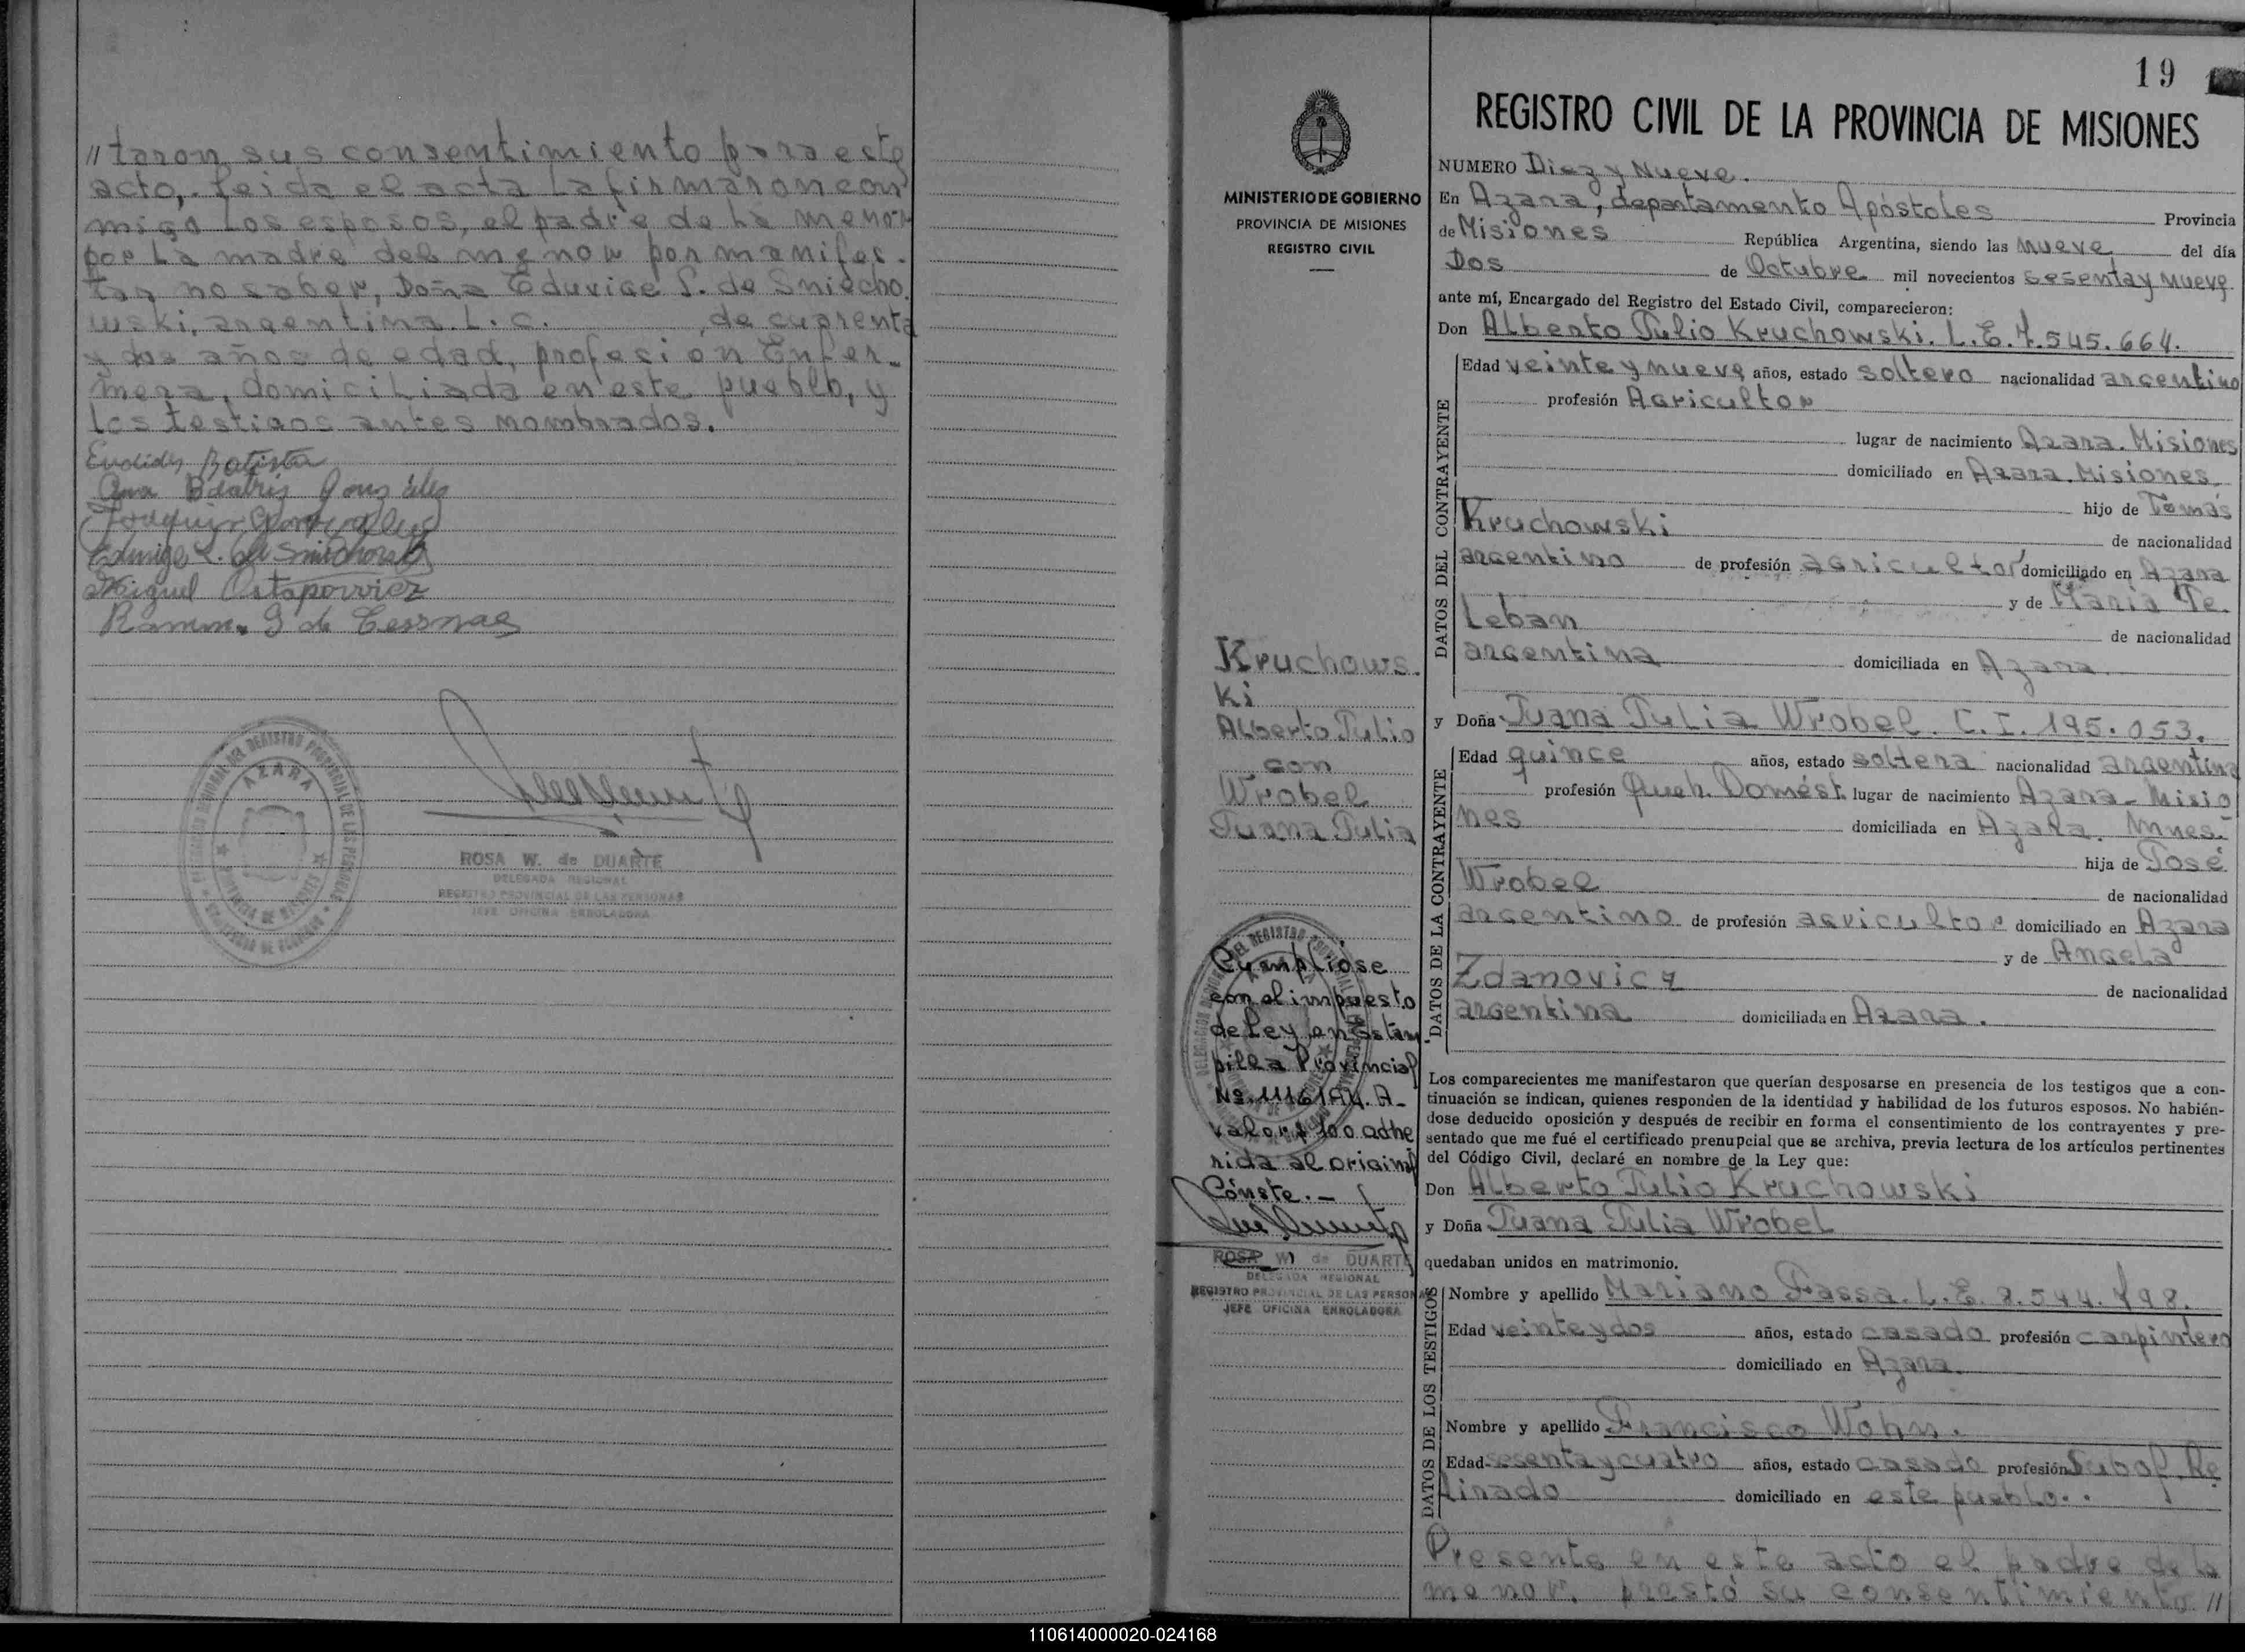 // taron sus consentimiento para este
acto, leida el acta la firmaron con
migo los esposos, el padre de la menor
por la madre del menor por manifes-
tar no saber, Doña Eduvige S. de Sniecho.
wski, argentina. L. C. , de cuarenta
y dos años de edad, profesión Enfer-
mera, domiciliada en este pueblo, y
los testigos antes nombrados.
Euclides Batista
Ana Beatriz González
Joaquin González
Miguel Ostapowicz
Ramon G de
AZARA
ROSA W. de DUARTE
DELEGADA REGIONAL
REGISTRO PROVINCIAL DE LAS PERSONAS
JEFE OFICINA ENROLADORA
MINISTERIO DE GOBIERNO
PROVINCIA DE MISIONES
REGISTRO CIVIL
Kruchows.
ki
Alberto Julio
con
Wrobel
Juana Julia
Cumpliose
con el impuesto
de Ley en estam
pilla Provincial
valor $ 100 adhe
rida al original
Cónste.-
ROSA W. de DUARTE
DELEGADA REGIONAL
REGISTRO PROVINCIAL DE LAS PERSONAS
JEFE OFICINA ENROLADORA
19
REGISTRO CIVIL DE LA PROVINCIA DE MISIONES
NUMERO Diez y Nueve.
En Azara, departamento Apóstoles Provincia
de Misiones República Argentina, siendo las nueve del día
Dos de Octubre mil novecientos sesenta y nueve
ante mí, Encargado del Registro del Estado Civil, comparecieron:
Don Alberto Julio Kruchowski. L.E. 7.545.664.
DATOS DEL CONTRAYENTE
Edad veinte y nueve años, estado soltero nacionalidad argentino
profesión Agricultor
lugar de nacimiento Azara. Misiones
domiciliado en Azara. Misiones
hijo de Tomás
Kruchowski de nacionalidad
argentino de profesión agricultor domiciliado en Azara
y de María Te.
Leban de nacionalidad
argentina domiciliada en Azara
y Doña Juana Julia Wrobel. C.I. 195.053.
DATOS DE LA CONTRAYENTE
Edad quince años, estado soltera nacionalidad argentina
profesión Queh. Domést. lugar de nacimiento Azara - Misio
nes domiciliada en Azara. Mnes.
hija de José
Wrobel de nacionalidad
argentino de profesión agricultor domiciliado en Azara
y de Angela
Zdanovicz de nacionalidad
argentina domiciliada en Azara.
Los comparecientes me manifestaron que querían desposarse en presencia de los testigos que a con-
tinuación se indican, quienes responden de la identidad y habilidad de los futuros esposos. No habién-
dose deducido oposición y después de recibir en forma el consentimiento de los contrayentes y pre-
sentado que me fué el certificado prenupcial que se archiva, previa lectura de los artículos pertinentes
del Código Civil, declaré en nombre de la Ley que:
Don Alberto Julio Kruchowski
y Doña Juana Julia Wrobel
quedaban unidos en matrimonio.
DATOS DE LOS TESTIGOS
Nombre y apellido Mariano Fassa. L.E. 8.544.798.
Edad veinte y dos años, estado casado profesión carpintero
domiciliado en Azara.
Nombre y apellido Francisco Wohn.
Edad sesenta y cuatro años, estado casado profesión Subof. Re
tirado domiciliado en este pueblo..
Presente en este acto el padre de la
menor, prestó su consentimiento //
110614000020-024168